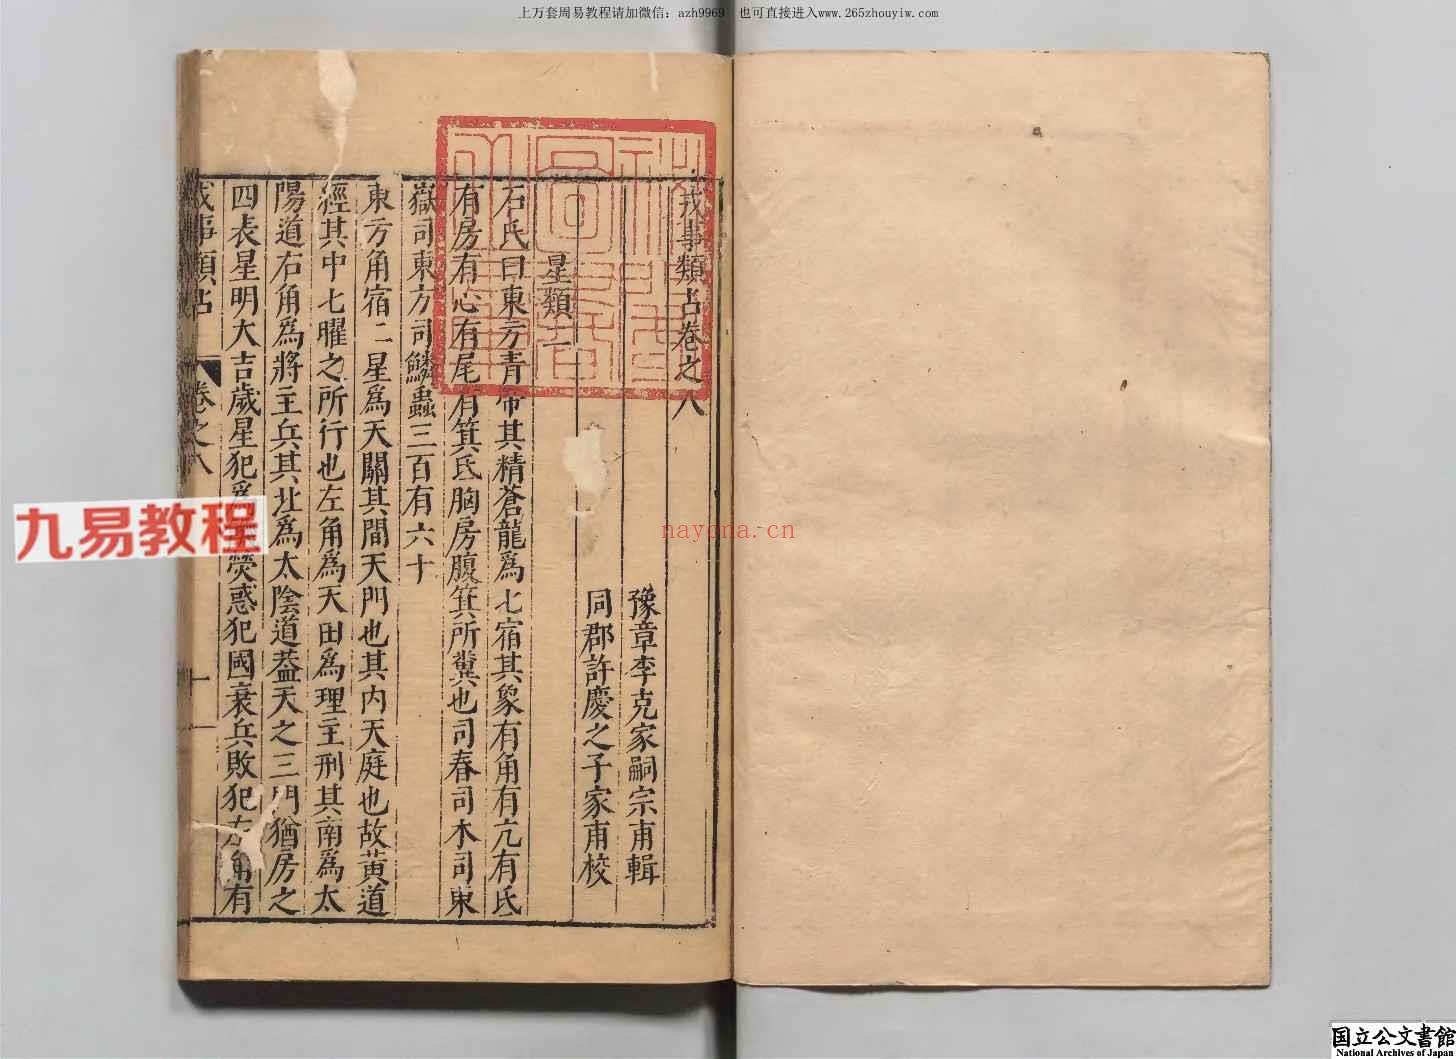 上万套周易教程请加微信：azh9969　也可直接进入www.265zhouyiw.com
戎事類占卷之八
豫章李克家嗣宗甫輯
同郡許慶之子家甫校
星類一
石氏曰東方青帝其精蒼龍爲七宿其象有角有亢有氐
有房有心有尾有箕氐胸房腹箕所糞也司春司木司東
嶽司東方司鱗蟲三百有六十
東方角宿二星爲天關其間天門也其内天庭也故黄道
經其中七曜之所行也左角爲天田爲理主刑其南爲太
陽道右角爲將主兵其北爲太陰道葢天之三門猶房之
四表星明大吉歲星犯爲熒惑犯國衰兵敗犯左角有
戎事類占
卷之八
一
九易教程
nayona.cn
国立公文書館
National Archives of Japan